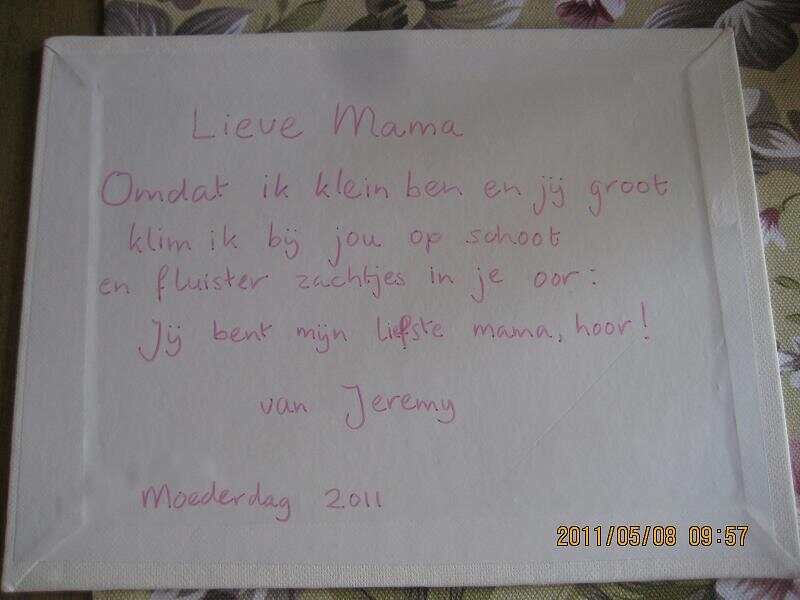 Lieve Mama
Omdat ik klein ben en jij groot
klim ik bij jou op schoot
en fluister zachtjes in je oor:
Jij bent mijn liefste mama, hoor!
van Jeremy
Moederdag 2011
2011/05/08 09:57